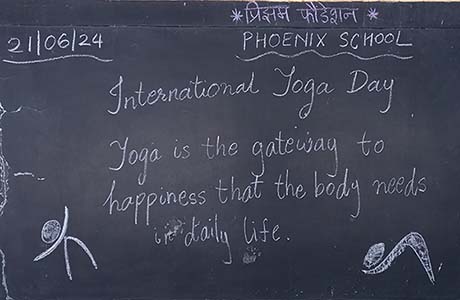 *प्रिझम फौंडेशन*
21/06/24
PHOENIX SCHOOL
International Yoga Day
Yoga is the gateway to
happiness that the body needs
in daily life.